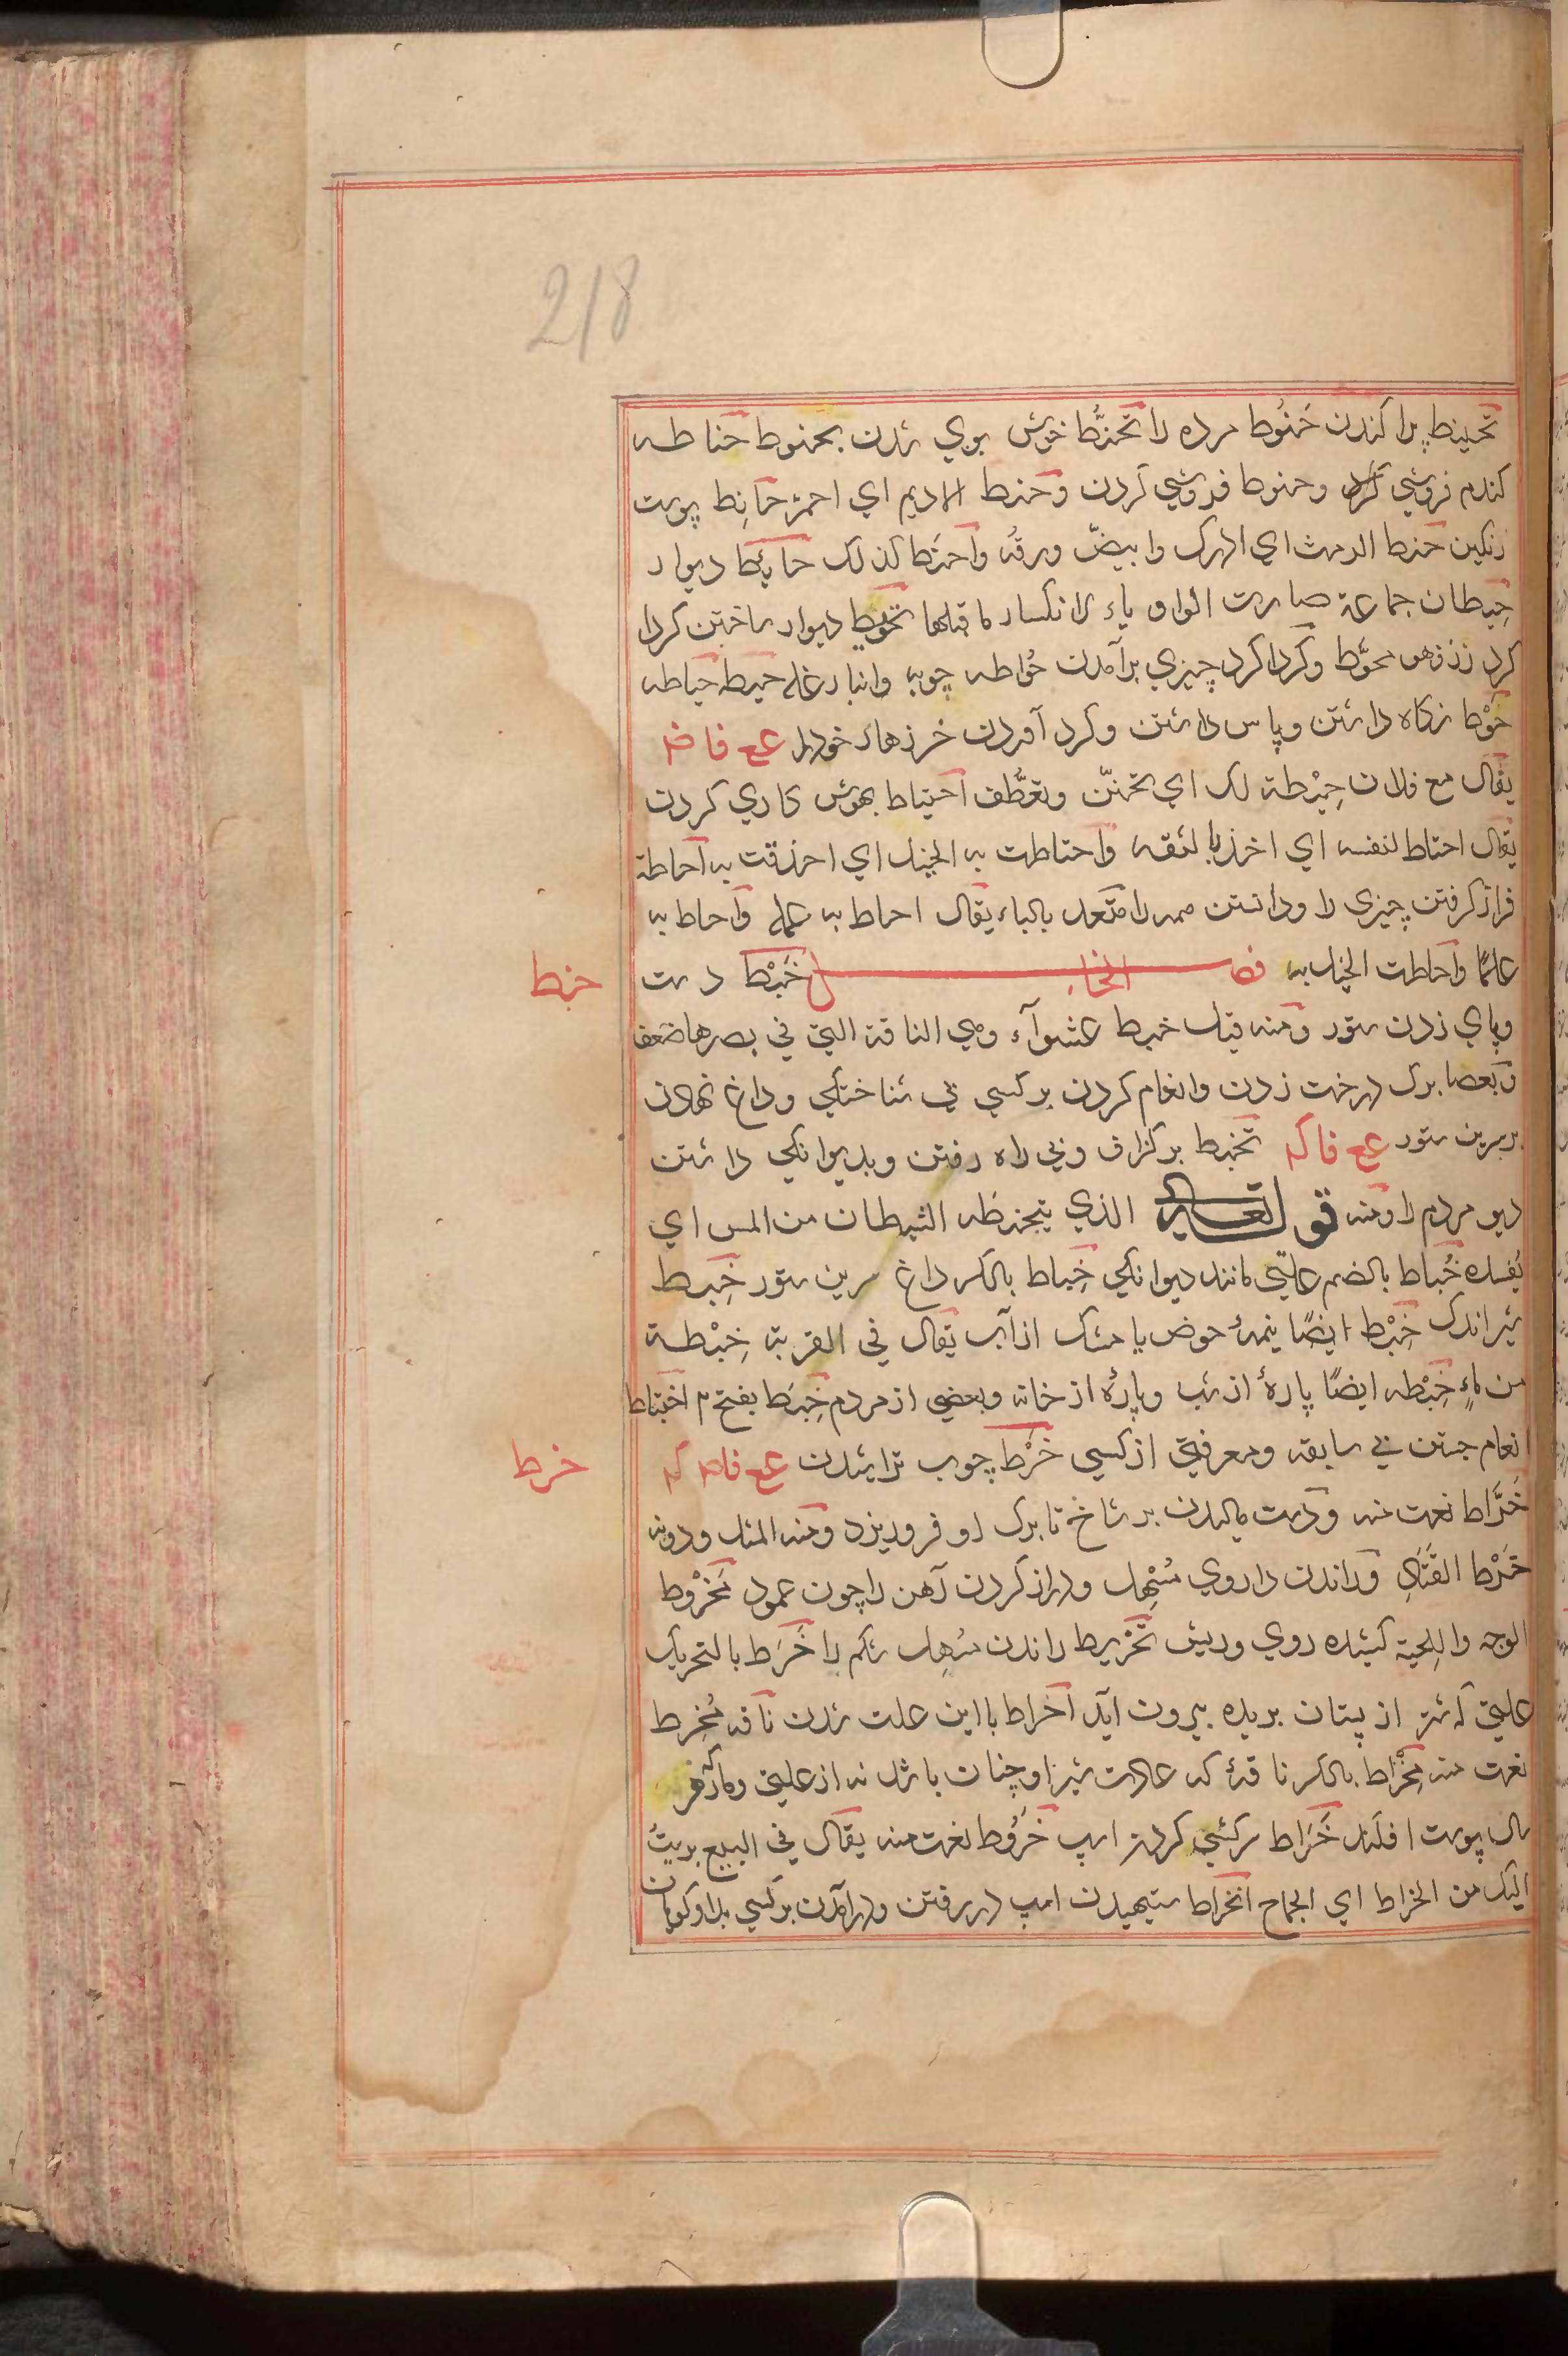 218
تحنیط پراکندن حَنُوط مرده را تحنُّط خوش بوي شدن بحنوط حناطه
کندم فروشي کردن وحنوط فروشي کردن وحنط الادیم اي احمرّ حانِط پوست
رنکین حنط الرمث اي ادرک وابیضّ ورقُه واحنَط کذلک حائِط دیوار
حِیطان جماعة صارت الواو یاء لانکسار ماقبلها تحویط دیوار ساختن کردا
کرد رز فهو محوَّط وکرداکرد چیزي برآمدن حُواطه چوبه وانبار غله حیطه حیاطه
حَوْط نکاه داشتن وپاس داشتن وکرد آوردن خرزهاء خود را ع ع فا ضم
یقال مع فلان حِیْطة لک اي تحنّن وتعطُّف احتیاط بهوش کاري کردن
یقال احتاط لنفسه اي اخذ بالثقه واحتاطت به الخیل اي احدقت به احاطة
فراز کرفتن چیزی را ودانستن همه را متعد بالباء یقال احاط به علمه واحاط به
علمًا واحاطت الخیل به فصل الخاء خَبْط دست
خبط
وپاي زدن ستور ومنه قیل خبط عشوآء وهي الناقة التي في بصرها ضعف
وبعصا برک درخت زدن وانعام کردن بر کسي بي شناختکي وداغ نهادن
برسرین ستور ع ع فا کم تخبط بر کزاف وبي راه رفتن وبدیوانکي داشتن
دیو مردم را ومنه قوله تعالی الذي یتخبّطه الشیطان من المس اي
یُفسده خُباط بالضم علتي مانند دیوانکي خِباط بالکسر داغ سرین ستور خِبط
شیر اندک خِبْط ایضًا نیمهٔ حوض یا مشک از آب یقال في القربة خِبْطة
من ماءٍ خِبْطه ایضًا پارهٔ از شب وپارهٔ از خانه وبعضي از مردم خِبَط بفتح م اختباط
انعام جستن بي سابقه ومعرفتي از کسي خَرْط چوب تراشیدن ع ع فا ضم کم
خرط
خَرَّاط نعت منه ودست مالیدن بر شاخ تا برک او فروریزد ومنه المثل ودونه
خَرْط القَتَادِ وراندن داروي مُسْهِل ودراز کردن آهن را چون عمود مخْرُوط
الوجه واللِحیة کشیده روي وریش تخریط راندن مسُهِل شکم را خَرَط بالتحریک
علتي که شیر از پستان بریده بیرون آید اخراط با این علت شدن ناقه مُخرِط
نعت منه مِخْراط بالکسر ناقهٔ که عادت شیر او چنان باشد نه از علتي ومار که هر
سال پوست افکند خَرَاط سرکشي کردن اسپ خَرُوط نعت منه یقال في البیع بریتُ
الیک من الخراط اي الجماح انخراط ستیهیدن اسپ در رفتن ودرآمدن بر کسي